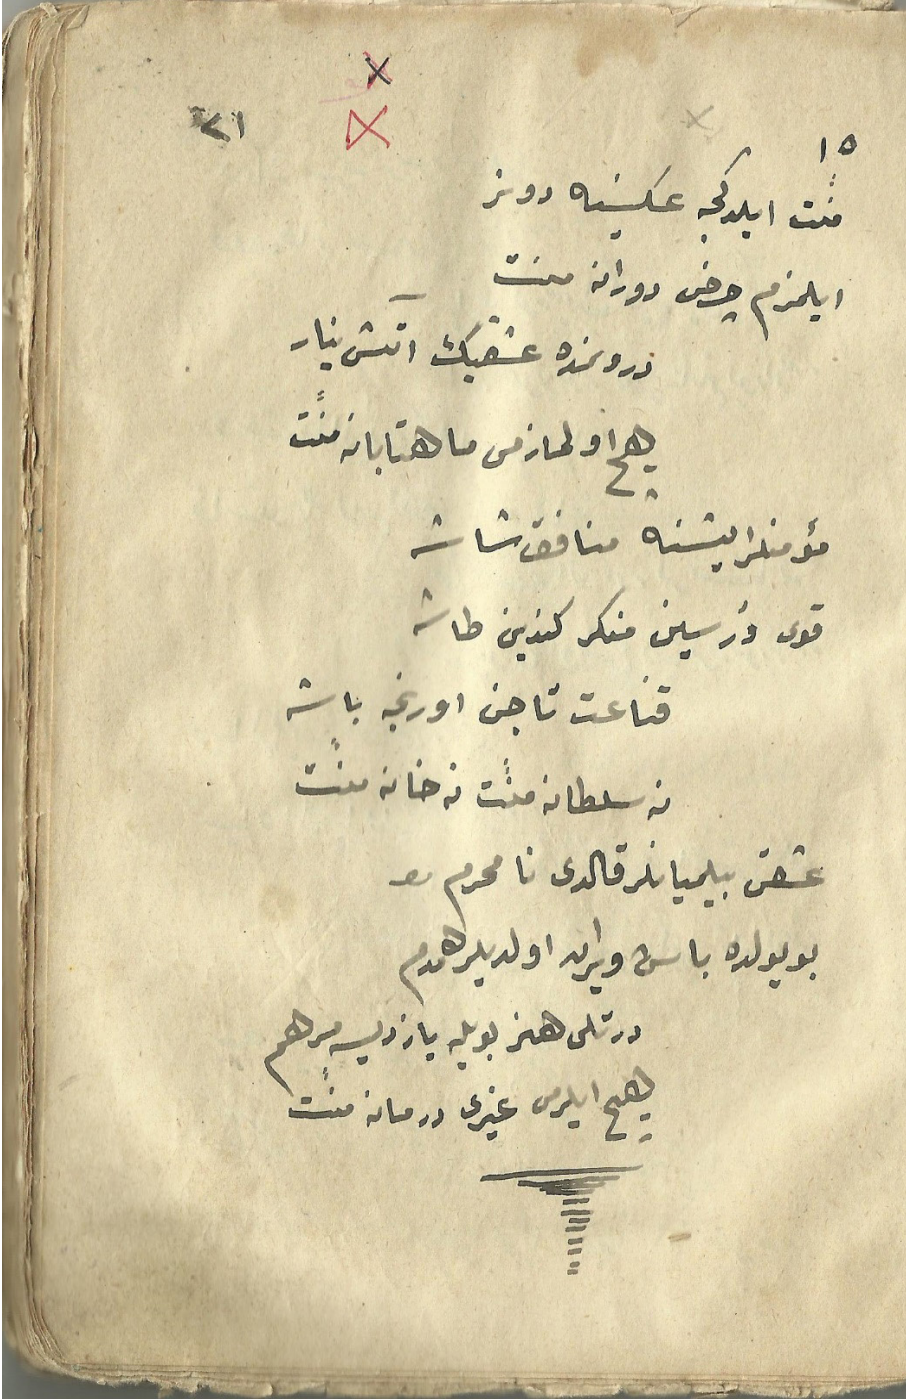 ٢١
١٥
منّت ايلدكجه عكسينه دونر
ايلمزم چرخ دورانه منت
درونمده عشقيڭ آتش ينار
هيچ اولمازمى ماهتابانه منّت
مؤمنلر ايشنه منافق شاشه
قوى دورسين منكر كندين طاشه
قناعت تاجن اورنجه باشه
نه سلطانه منّت نه خانه منّت
عشقى بيلميانلر قالدى نامحرم
بو يولده باش ويرن اولديلر همدم
درتلى هنر بويله يازديسه مرهم
هيچ ايلرمى غيرى درمانه منّت